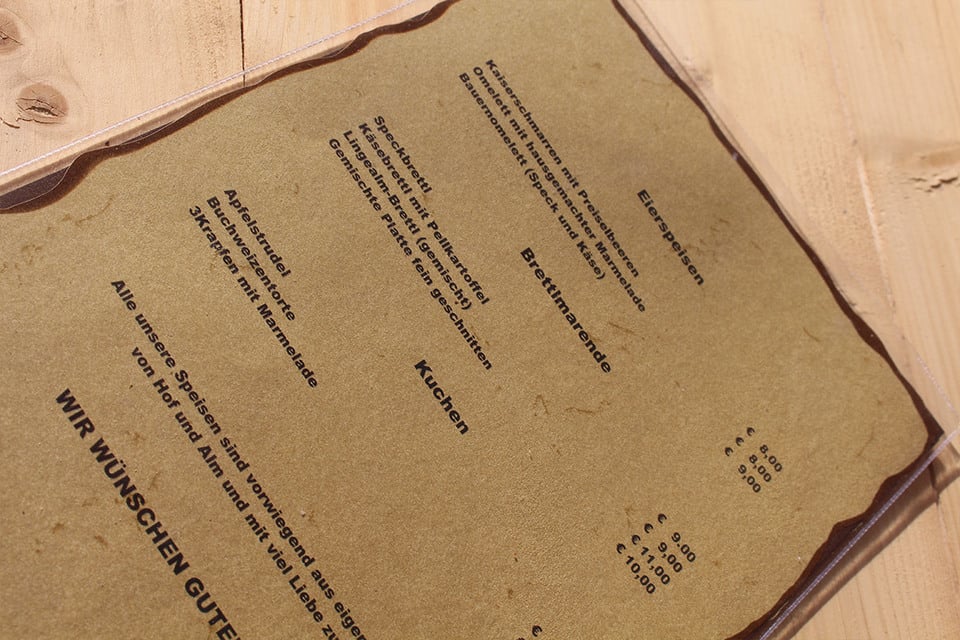 Eierspeisen
Kaiserschmarren mit Preiselbeeren € 8,00
Omelett mit hausgemachter Marmelade € 8,00
Bauernomelett (Speck und Käse) € 9,00
Brettlmarende
Speckbrettl € 9.00
Käsebrettl mit Pellkartoffel € 9,00
Lingealm-Brettl (gemischt) € 11,00
Gemischte Platte fein geschnitten € 10,00
Kuchen
Apfelstrudel €
Buchweizentorte
3Krapfen mit Marmelade
Alle unsere Speisen sind vorwiegend aus eigen
von Hof und Alm und mit viel Liebe zu
WIR WÜNSCHEN GUTE